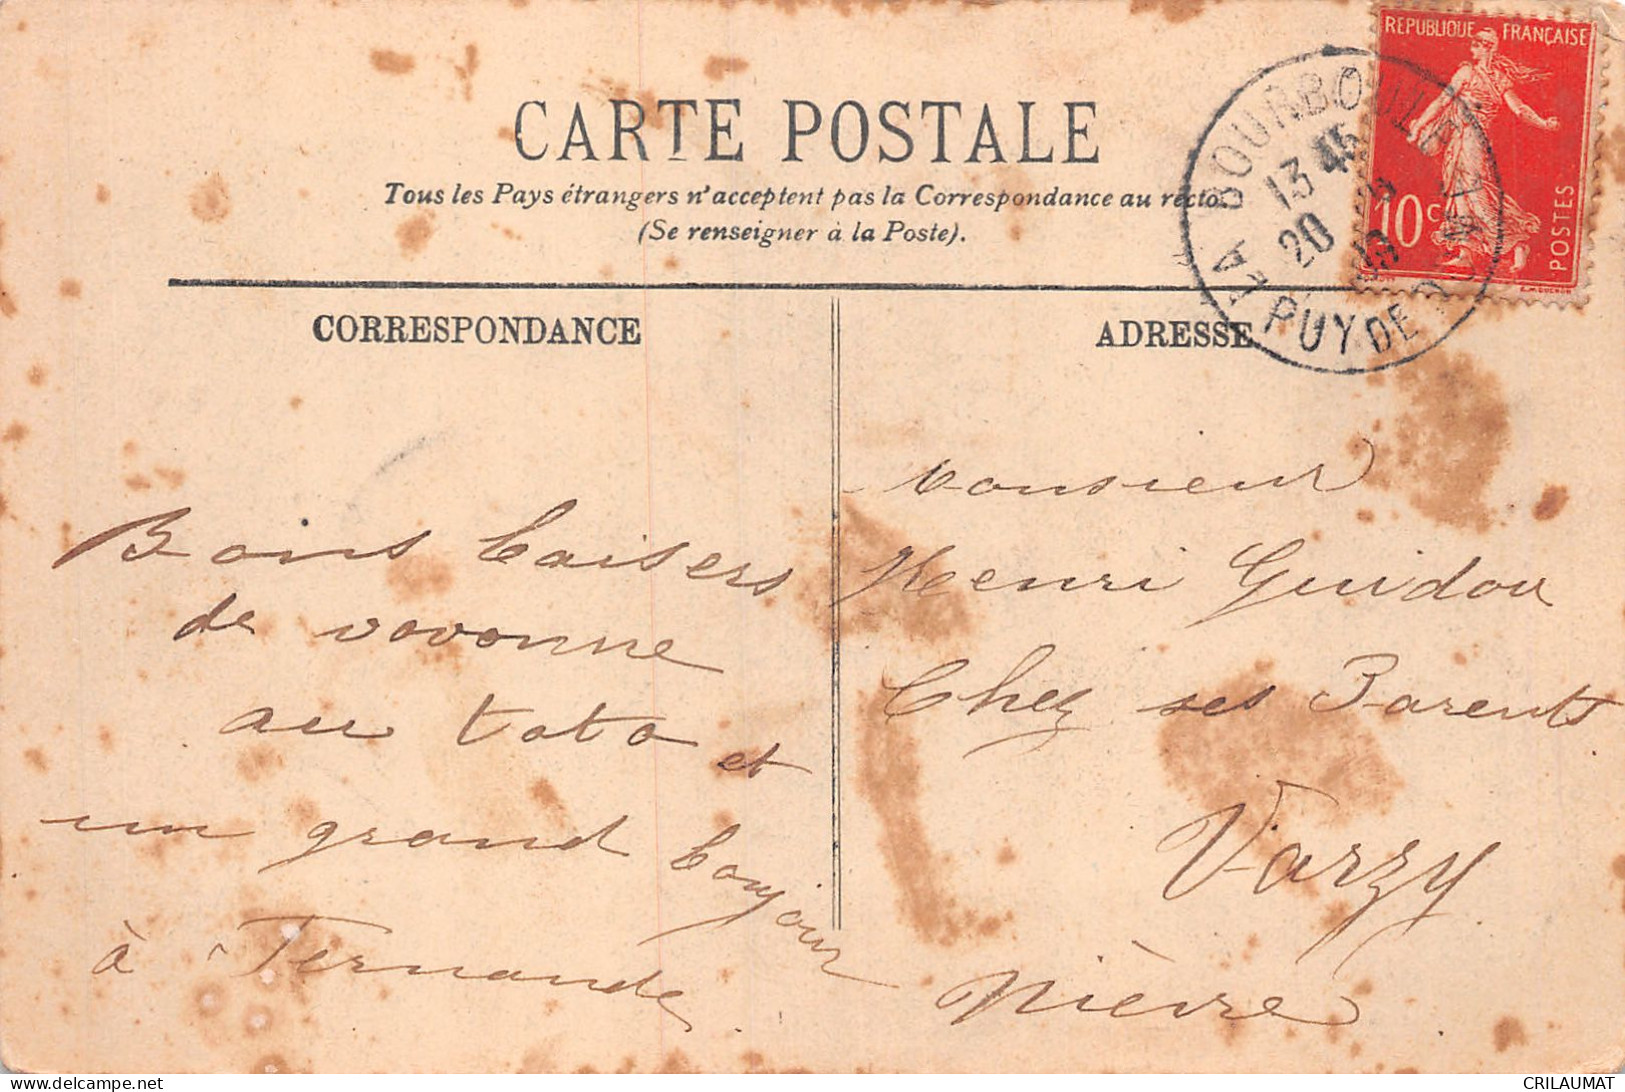 REPUBLIQUE FRANÇAISE
10c
POSTES
LA BOURBOULE
13 45
20
PUY DE DOME
CARTE POSTALE
Tous les Pays étrangers n'acceptent pas la Correspondance au recto
(Se renseigner à la Poste).
CORRESPONDANCE
Bons baisers
de vovonne
au toto et
un grand bonjour
à Fernande
ADRESSE
Monsieur
Henri Guidou
Chez ses Parents
Varzy
Nièvre
CRILAUMAT